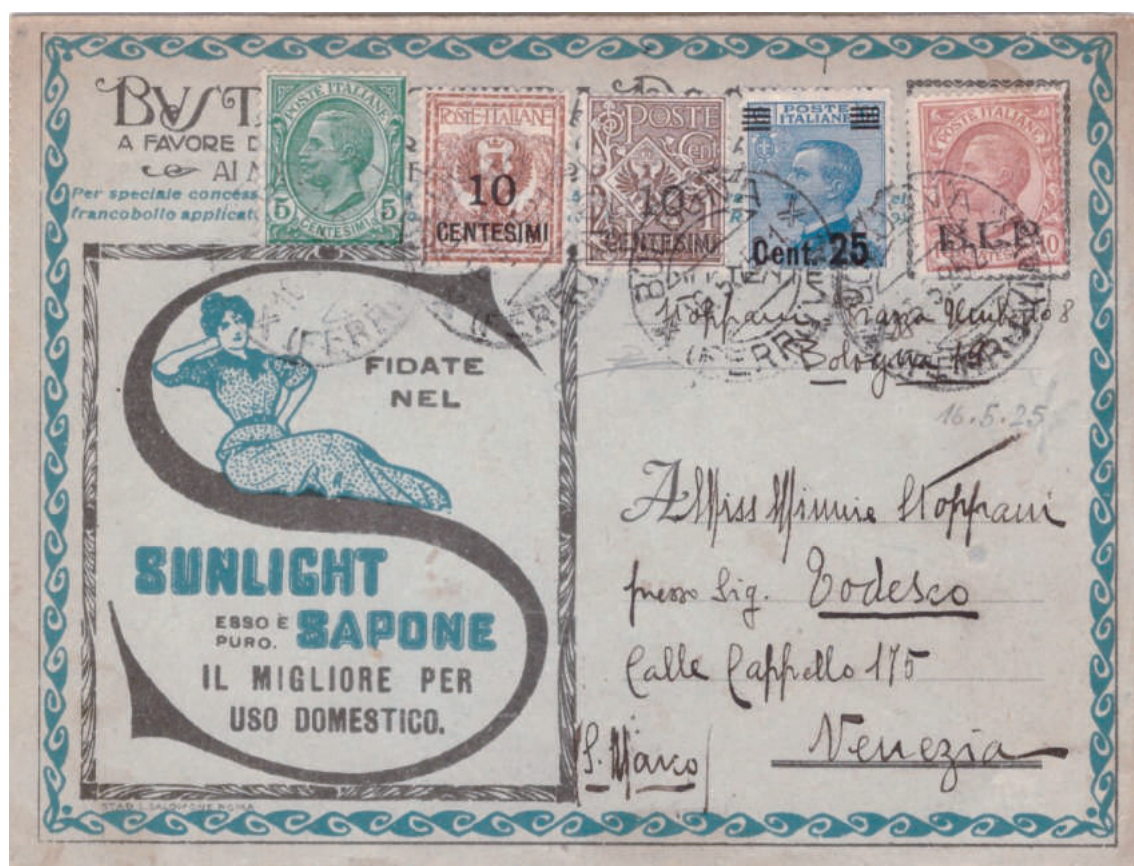 BUST
A FAVORE D
AI
Per speciale concess
francobollo applicat
POSTE ITALIANE
5 5
CENTESIMI
POSTE ITALIANE
10
CENTESIMI
POSTE
Cent
10
CENTESIMI
POSTE
ITALIANE
Cent. 25
POSTE ITALIANE
B.L.P.
10
(FERR
Stoppani Piazza Umberto 8
Bologna 19
16.5.25
FIDATE
NEL
SUNLIGHT
ESSO È
PURO. SAPONE
IL MIGLIORE PER
USO DOMESTICO.
A Miss Minnie Stoppani
presso Sig. Todesco
Calle Cappello 175
S. Marco Venezia
STAB. L. SALOMONE ROMA